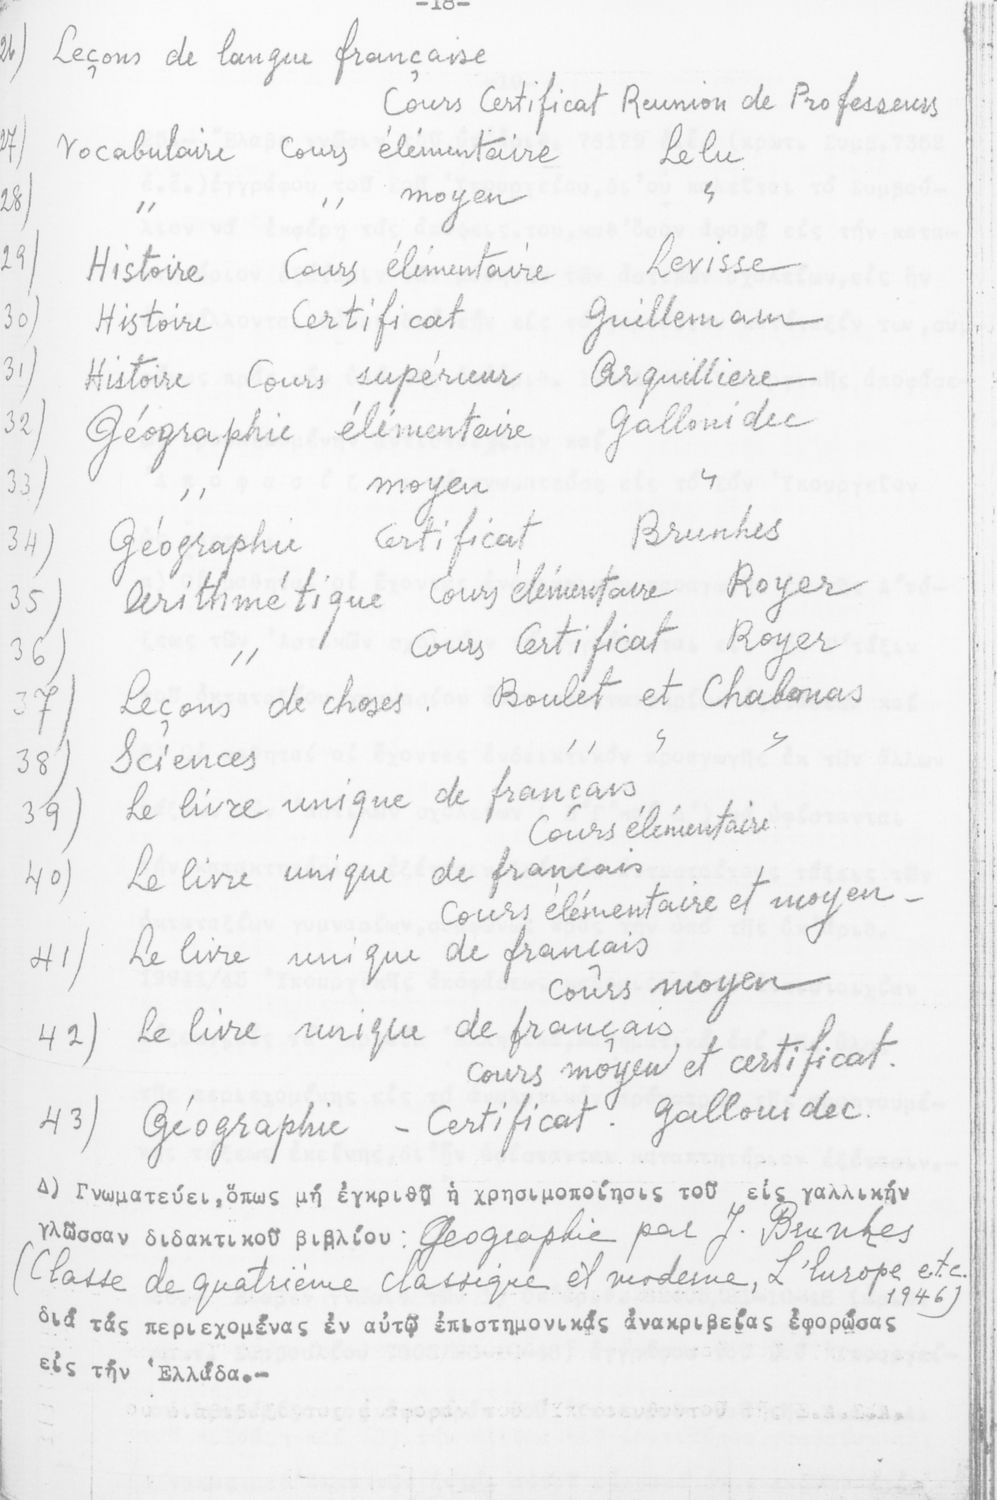 -18-
26) Leçons de langue française
Cours Certificat Reunion de Professeurs
27) Vocabulaire Cours élémentaire Lelu
28) ,, ,, moyen "
29) Histoire Cours élémentaire Levisse
30) Histoire Certificat Guillemain
31) Histoire Cours supérieur Arquilliere
32) Géographie élémentaire Gallouidec
33) ,, moyen "
34) Géographie Certificat Brunhes
35) Arithmétique Cours élémentaire Royer
36) ,, Cours Certificat Royer
37) Leçons de choses. Boulet et Chabanas
38) Sciences ,, " "
39) Le livre unique de français
Cours élémentaire
40) Le livre unique de francais
Cours élémentaire et moyen -
41) Le livre unique de français
Cours moyen
42) Le livre unique de français
cours moyen et certificat.
43) Géographie - Certificat. Gallouidec.
Δ) Γνωματεύει, ὅπως μή ἐγκριθῇ ἡ χρησιμοποίησις τοῦ εἰς γαλλικήν
γλῶσσαν διδακτικοῦ βιβλίου: Geographie par J. Brunhes
(Classe de quatrième classique et moderne, L'Europe etc.
1946)
διά τάς περιεχομένας ἐν αὐτῷ ἐπιστημονικάς ἀνακριβείας ἐφορώσας
εἰς τήν Ἑλλάδα.-